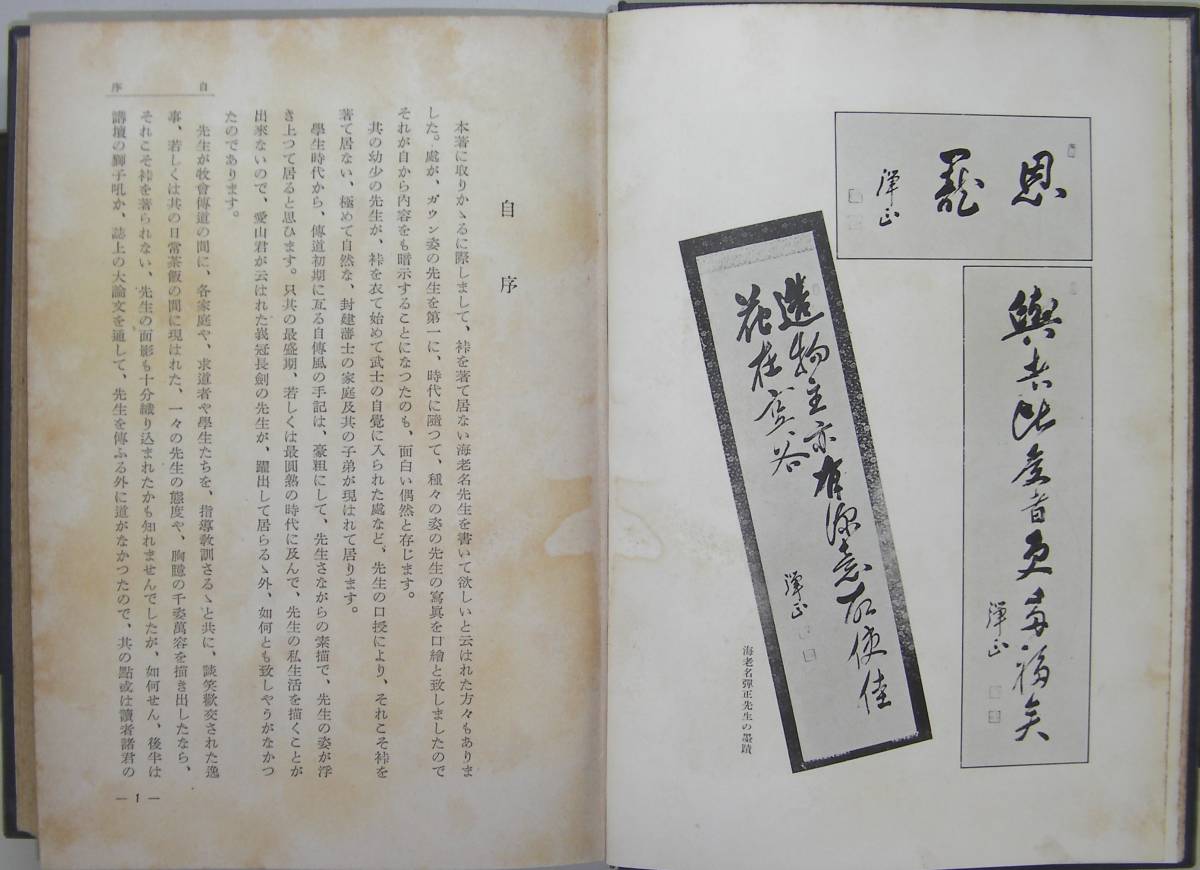 恩寵
彈正
與者比受者更福矣
彈正
造物主亦有深意故使佳
花在空谷
彈正
海老名彈正先生の墨蹟
自序
自序
本著に取りかゝるに際しまして、裃を著て居ない海老名先生を書いて欲しいと云はれた方々もありま
した。處が、ガウン姿の先生を第一に、時代に隨つて、種々の姿の先生の寫眞を口繪と致しましたので
それが自から內容をも暗示することになつたのも、面白い偶然と存じます。
其の幼少の先生が、裃を衣て始めて武士の自覺に入られた處など、先生の口授により、それこそ裃を
著て居ない、極めて自然な、封建藩士の家庭及其の子弟が現はれて居ります。
學生時代から、傳道初期に亙る自傳風の手記は、豪粗にして、先生さながらの素描で、先生の姿が浮
き上つて居ると思ひます。只其の最盛期、若しくは最圓熟の時代に及んで、先生の私生活を描くことが
出來ないので、愛山君が云はれた峩冠長劍の先生が、躍出して居らるゝ外、如何とも致しやうがなかつ
たのであります。
先生が牧會傳道の間に、各家庭や、求道者や學生たちを、指導敎訓さるゝと共に、談笑歡交された逸
事、若しくは其の日常茶飯の間に現はれた、一々の先生の態度や、胸臆の千姿萬容を描き出したなら、
それこそ裃を著られない、先生の面影も十分織り込まれたかも知れませんでしたが、如何せん、後半は
講壇の獅子吼か、誌上の大論文を通して、先生を傳ふる外に道がなかつたので、其の點或は讀者諸君の
— 1 —